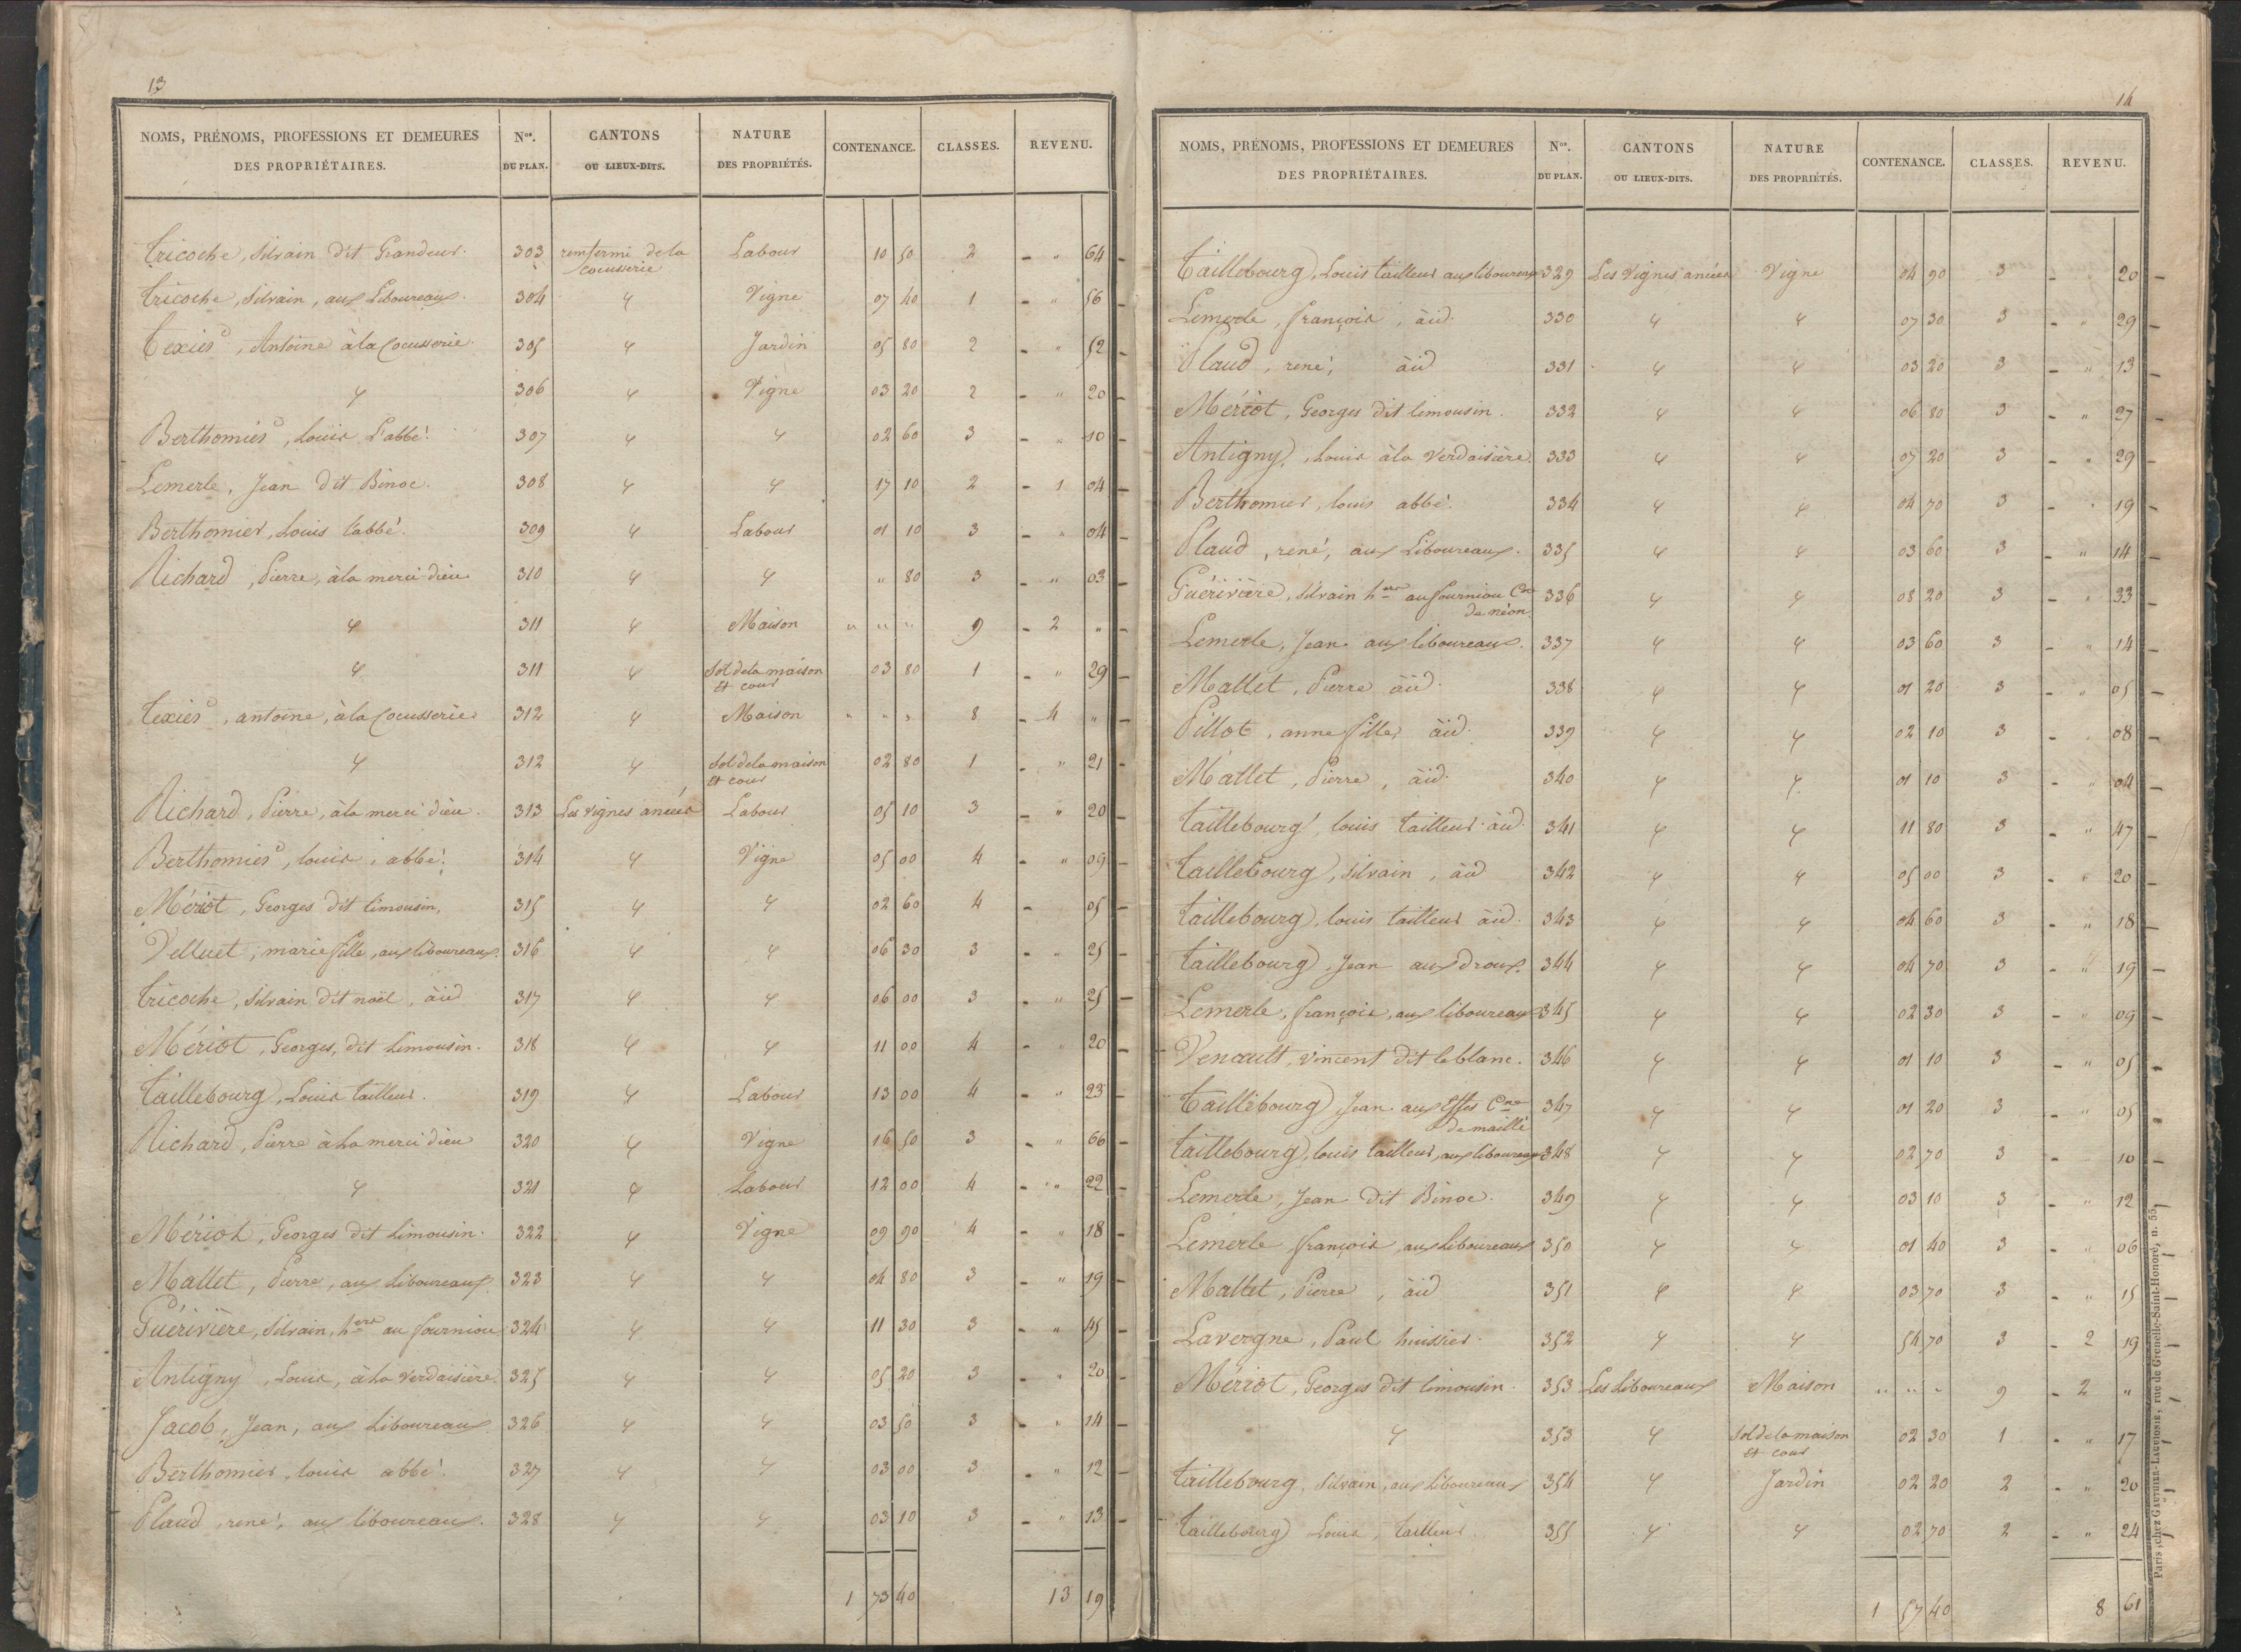 13
NOMS, PRÉNOMS, PROFESSIONS ET DEMEURES DES PROPRIÉTAIRES. Nos. DU PLAN. CANTONS OU LIEUX-DITS. NATURE DES PROPRIÉTÉS. CONTENANCE. CLASSES. REVENU.
Tricoche, Silvain dit Grandeur. 303 renfermé de la Cocusserie Labour 10 50 2 - " 64
Tricoche, Silvain, aux Liboureaux. 304 4 Vigne 07 40 1 - " 56
Texier, Antoine à la Cocusserie. 305 4 Jardin 05 80 2 - " 52
4 306 4 Vigne 03 20 2 - " 20
Berthomier, Louis L'abbé. 307 4 4 02 60 3 - " 10
Lemerle, Jean dit Binoc. 308 4 4 17 10 2 - 1 04
Berthomier, Louis l'abbé. 309 4 Labour 01 10 3 - " 04
Richard, Pierre, à la merci dieu 310 4 4 " 80 3 - " 03
4 311 4 Maison " " " 9 - 2 "
4 311 4 Sol de la maison et cour 03 80 1 - " 29
Texier, antoine, à la Cocusserie 312 4 Maison " " " 8 - 4 "
4 312 4 Sol de la maison et cour 02 80 1 - " 21
Richard, Pierre, à la merci dieu. 313 Les vignes Labour 05 10 3 - " 20
Berthomier, louis, abbé. 314 4 Vigne 05 00 4 - " 09
Mériot, Georges dit limousin, 315 4 4 02 60 4 - 05
Velluet, marie fille, aux liboureaux. 316 4 4 06 30 3 - " 25
Tricoche, Silvain dit noël, àid 317 4 4 06 00 3 - " 25
Mériot, Georges, dit Limousin. 318 4 4 11 00 4 - " 20
Taillebourg, Louis tailleur. 319 4 Labour 13 00 4 - " 23
Richard, Pierre à la merci dieu 320 4 Vigne 16 50 3 - " 66
4 321 4 Labour 12 00 4 - " 22
Mériot, Georges dit Limousin. 322 4 Vigne 09 90 4 - " 18
Mallet, Pierre, aux Liboureaux. 323 4 4 04 80 3 - " 19
Guérivière, Silvain, hers au fourniou 324 4 4 11 30 3 - " 45
Antigny, Louis, à la Verdaisière. 325 4 4 05 20 3 - " 20
Jacob, Jean, aux Liboureaux 326 4 4 03 50 3 - " 14
Berthomier, louis abbé. 327 4 4 03 00 3 - " 12
Plaud, rené, aux liboureaux. 328 4 4 03 10 3 - " 13
1 73 40 13 19
14
NOMS, PRÉNOMS, PROFESSIONS ET DEMEURES DES PROPRIÉTAIRES. Nos. DU PLAN. CANTONS OU LIEUX-DITS. NATURE DES PROPRIÉTÉS. CONTENANCE. CLASSES. REVENU.
Taillebourg, Louis tailleur aux liboureaux 329 Les Vignes Vigne 04 90 3 - 20
Lemerle, françois, àid. 330 4 4 07 30 3 - " 29
Plaud, rené, àid 331 4 4 03 20 3 - " 13
Mériot, Georges dit limousin. 332 4 4 06 80 3 - " 27
Antigny, Louis à la Verdaisière. 333 4 4 07 20 3 - " 29
Berthomier, louis abbé. 334 4 4 04 70 3 - " 19
Plaud, rené, aux Liboureaux. 335 4 4 03 60 3 - " 14
Guérivière, Silvain hers au fourniou Cne de néon. 336 4 4 08 20 3 - " 33
Lemerle, Jean aux liboureaux. 337 4 4 03 60 3 - " 14
Mallet, Pierre àid. 338 4 4 01 20 3 - " 05
Pillot, anne fille, àid. 339 4 4 02 10 3 - " 08
Mallet, Pierre, àid. 340 4 4 01 10 3 - " 04
Taillebourg, louis tailleur àid. 341 4 4 11 80 3 - " 47
Taillebourg, silvain, àid 342 4 4 05 00 3 - " 20
Taillebourg, louis tailleur àid. 343 4 4 04 60 3 - " 18
Taillebourg, Jean aux droux. 344 4 4 04 70 3 - " 19
Lemerle, françois, aux liboureaux 345 4 4 02 30 3 - " 09
Venault, vincent dit leblanc. 346 4 4 01 10 3 - " 05
Taillebourg, Jean aux Effes Cne de maillé 347 4 4 01 20 3 - " 05
Taillebourg, louis tailleur, aux liboureaux 348 4 4 02 70 3 - 10
Lemerle, Jean dit Binoc. 349 4 4 03 10 3 - " 12
Lemerle françois aux Liboureaux 350 4 4 01 40 3 - " 06
Mallet, Pierre, àid 351 4 4 03 70 3 - " 15
Lavergne, Paul huissier. 352 4 4 54 70 3 - 2 19
Mériot, Georges dit limousin. 353 Les Liboureaux Maison " " " 9 - 2 "
4 353 4 Sol de la maison et cour 02 30 1 - " 17
Taillebourg, Silvain, aux Liboureaux 354 4 Jardin 02 20 2 - " 20
Taillebourg Louis, tailleur. 355 4 4 02 70 2 - " 24
1 57 40 8 61
Paris, chez GAUTHIER-LAGUIONIE, rue de Grenelle-Saint-Honoré, n. 55.